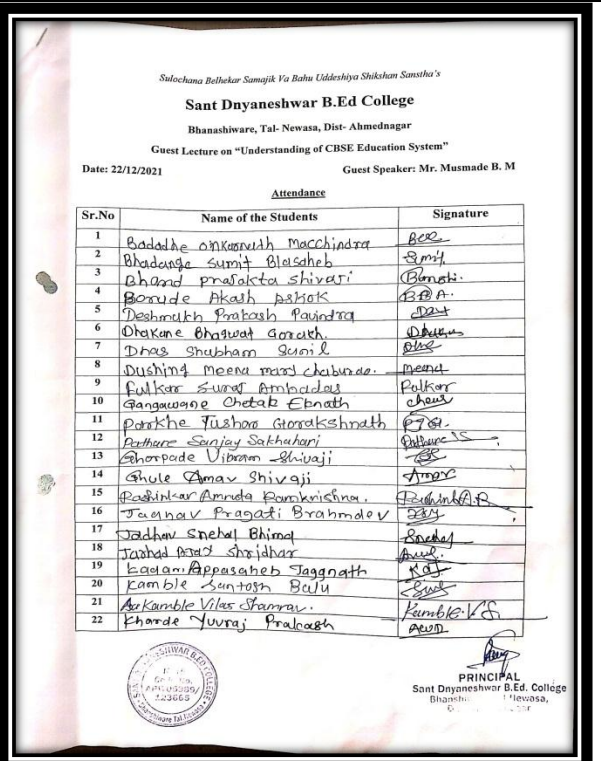 Sulochana Belhekar Samajik Va Bahu Uddeshiya Shikshan Sanstha's
Sant Dnyaneshwar B.Ed College
Bhanashiware, Tal- Newasa, Dist- Ahmednagar
Guest Lecture on "Understanding of CBSE Education System"
Date: 22/12/2021 Guest Speaker: Mr. Musmade B. M
Attendance
Sr.No Name of the Students Signature
1 Badadhe Macchindra
2 Bhadange Sumit Blasaheb Sumit
3 Bhand prajakta shivaji
4 Borude Akash Ashok B.A.
5 Deshmukh Prakash Pavindra
6 Dhakane Bhagwat Gorakh.
7 Dhas Shubham Sunil
8 Dushing Meena mary Meena
9 Fulkar Suraj Ambadas Fulkar
10 Gangawane Chetak Ebnath
11 Parkhe Tushar Gorakshnath
12 Pathare Sanjay Sakhahari
13 Ghorpade Vikram Shivaji
14 Ghule Amav Shivaji Amar
15 Rashinkar Amruta Ramkrishna.
16 Jadhav Pragati Brahmdev
17 Jadhav Snehal Bhimaj Snehal
18 Shridhar
19 Kadam Appasaheb Jaggnath
20 Kamble Santosh Balu
21 Kamble Vilas Shamrav. Kamble.V.S.
22 Kharde Yuvraj Prakash
PRINCIPAL
Sant Dnyaneshwar B.Ed. College